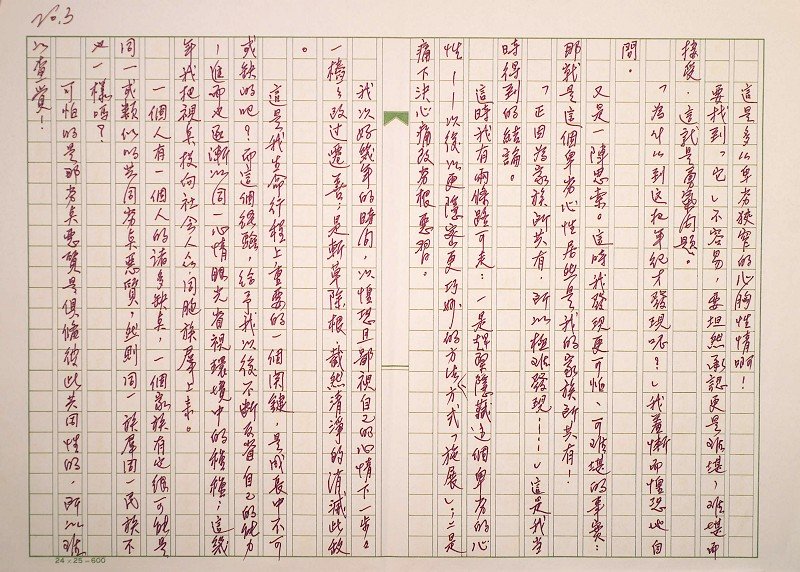 No.3
這是多么卑劣狹窄的心胸性情啊！
要找到「它」不容易，要坦然承認更是难堪，难堪而
接受．這就是勇氣问題。
「為什么到这把年纪才發現呢？」我羞慚而惶恐地自
問。
又是一陣思索。這時我發現更可怕、可难堪的事實：
那就是這個卑劣心性居然是我的家族所共有！
「正因為家族所共有．所以極难發現……」這是我当
時得到的結論。
這時我有兩條路可走：一是趕緊隱藏這個卑劣的心
性——以後以更隱密更巧妙的方法方式「施展」；二是
痛下決心痛改劣根惡習。
我以好幾年的時间，以惶恐且鄙視自己的心情下一步々
一樁々改过遷善，是斬草除根．截然清淨的消滅此敵
。
這是我生命行程上重要的一個関鍵，是成長中不可
或缺的吧？而這個經驗，給予我以後不斷反省自己的能力
，進而也逐漸以同一心情眼光省視環境中的種種；這幾
年我把視点投向社会人众．同胞族羣上来。
一個人有一個人的諸多缺点，一個家族有也很可能是
同一或類似的共同劣点惡質，然則同一族羣同一民族不
也一樣嗎？
可怕的是那劣点惡質是俱備彼此共同性的，所以难
以查覺！
24×25=600